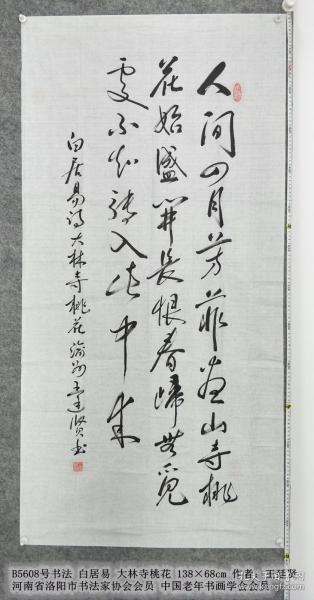 人间四月芳菲盡山寺桃
花始盛開長恨春歸無覓
處不知轉入此中來
白居易诗大林寺桃花王廷贤书
B5608号书法 白居易 大林寺桃花 138×68cm 作者：王廷贤
河南省洛阳市书法家协会会员 中国老年书画学会会员